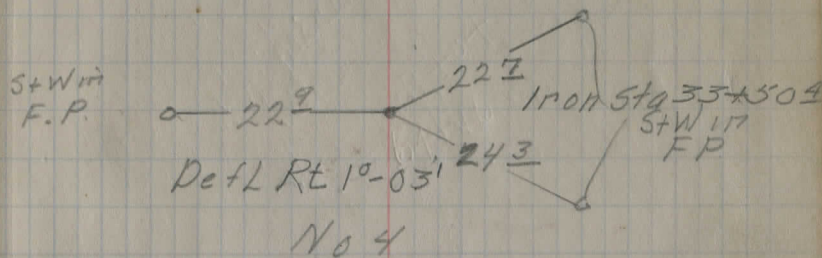 St W in
F.P.
22 9
22 7
Iron Sta 33+50 4
St W in
F P
24 3
Defl Rt 1°-03'
No 4